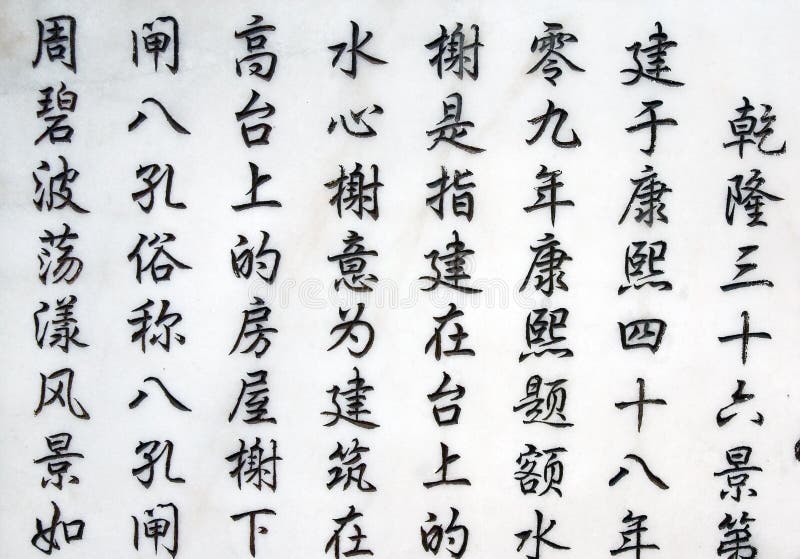 乾隆三十六景第
建于康熙四十八年
零九年康熙题额水
榭是指建在台上的
水心榭意为建筑在
高台上的房屋榭下
闸八孔俗称八孔闸
周碧波荡漾风景如
dreamstime